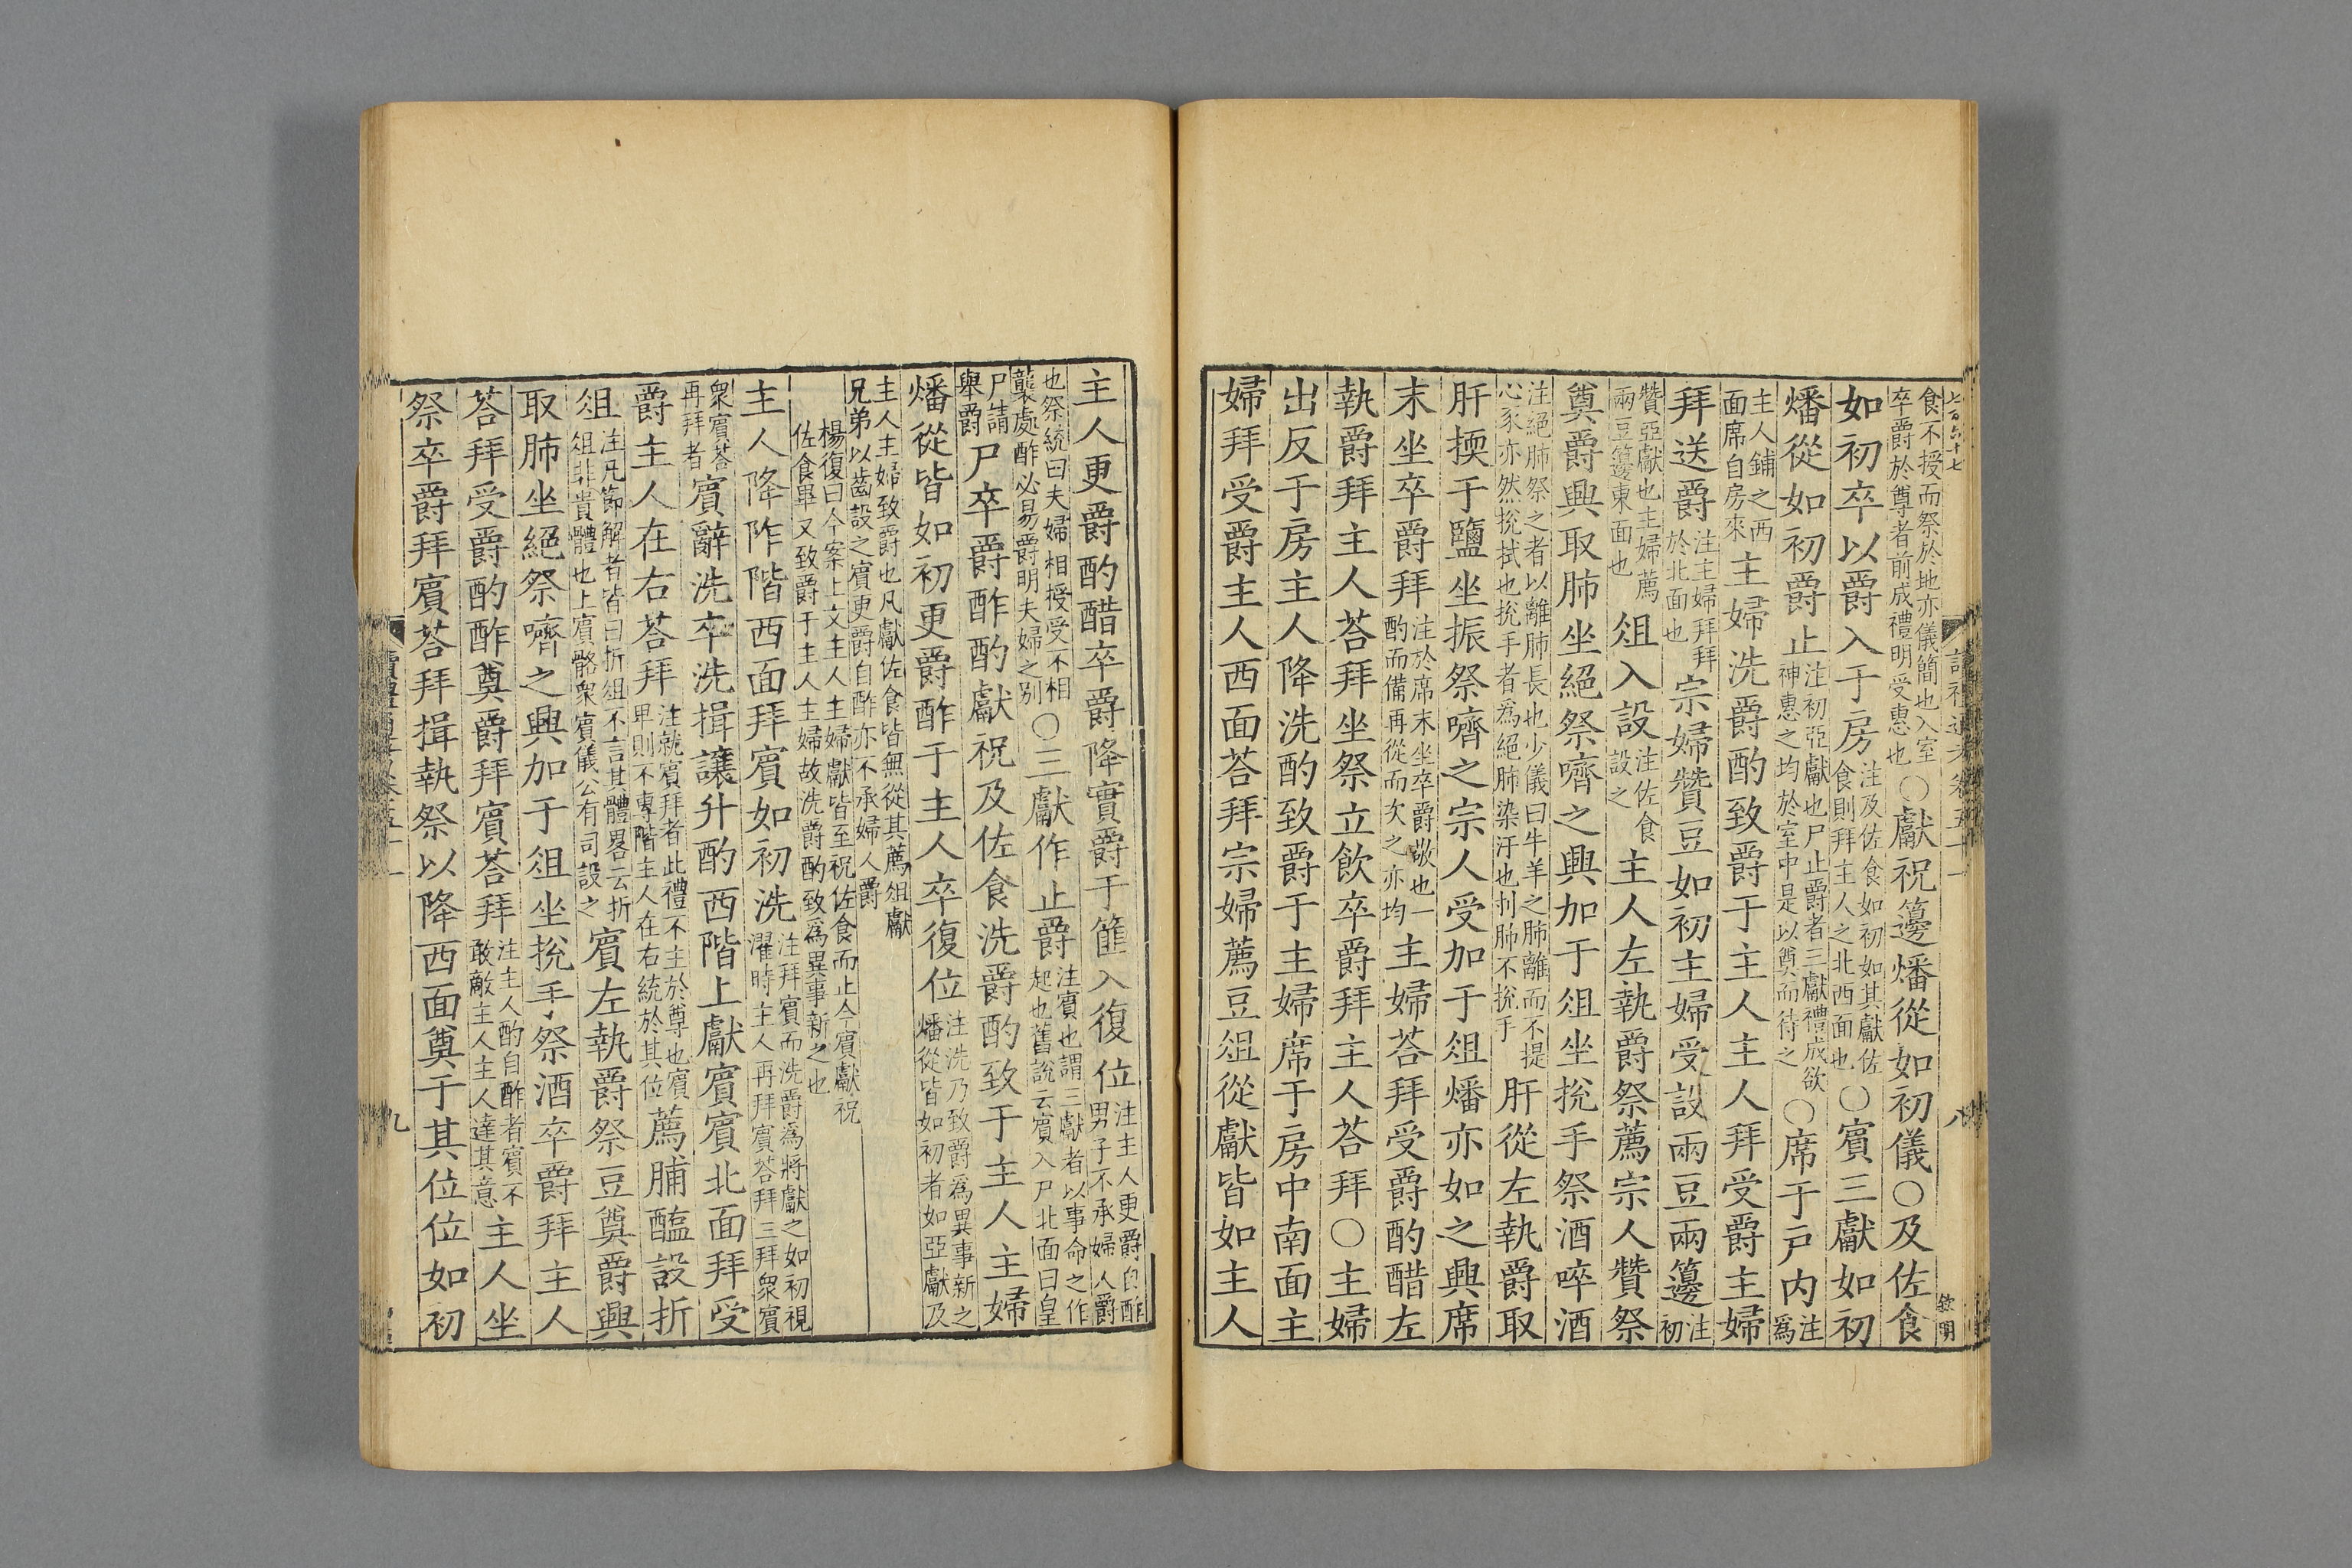 食不授而祭於地亦儀簡也入室
卒爵於尊者前成禮明受惠也
○獻祝籩燔從如初儀○及佐食
如初卒以爵入于房
注及佐食如初如其獻佐
食則拜主人之北西面也
○賓三獻如初
燔從如初爵止
注初亞獻也尸止爵者三獻禮成欲
神惠之均於室中是以奠而待之
○席于戶内
注
爲
主人鋪之西
面席自房來
主婦洗爵酌致爵于主人主人拜受爵主婦
拜送爵
注主婦拜拜
於北面也
宗婦贊豆如初主婦受設兩豆兩籩
注
初
贊亞獻也主婦薦
兩豆籩東面也
俎入設
注佐食
設之
主人左執爵祭薦宗人贊祭
奠爵興取肺坐絕祭嚌之興加于俎坐挩手祭酒啐酒
注絕肺祭之者以離肺長也少儀曰牛羊之肺離而不提
心豕亦然挩拭也挩手者爲絕肺染汙也刌肺不挩手
肝從左執爵取
肝擩于鹽坐振祭嚌之宗人受加于俎燔亦如之興席
末坐卒爵拜
注於席末坐卒爵敬也一
酌而備再從而次之亦均
主婦荅拜受爵酌醋左
執爵拜主人荅拜坐祭立飲卒爵拜主人荅拜○主婦
出反于房主人降洗酌致爵于主婦席于房中南面主
婦拜受爵主人西面荅拜宗婦薦豆俎從獻皆如主人
主人更爵酌醋卒爵降實爵于篚入復位
注主人更爵自酢
男子不承婦人爵
也祭統曰夫婦相授受不相
襲處酢必易爵明夫婦之別
○三獻作止爵
注賓也謂三獻者以事命之作
起也舊說云賓入戶北面曰皇
尸請
舉爵
尸卒爵酢酌獻祝及佐食洗爵酌致于主人主婦
燔從皆如初更爵酢于主人卒復位
注洗乃致爵爲異事新之
燔從皆如初者如亞獻及
主人主婦致爵也凡獻佐食皆無從其薦俎獻
兄弟以齒設之賓更爵自酢亦不承婦人爵
楊復曰今案上文主人主婦獻皆至祝佐食而止今賓獻祝
佐食畢又致爵于主人主婦故洗爵酌致爲異事新之也
主人降阼階西面拜賓如初洗
注拜賓而洗爵爲將獻之如初視
濯時主人再拜賓荅拜三拜衆賓
衆賓荅
再拜者
賓辭洗卒洗揖讓升酌西階上獻賓賓北面拜受
爵主人在右荅拜
注就賓拜者此禮不主於尊也賓
卑則不專階主人在右統於其位
薦脯醢設折
俎
注凡節解者皆曰折俎不言其體畧云折
俎非貴體也上賓骼衆賓儀公有司設之
賓左執爵祭豆奠爵興
取肺坐絕祭嚌之興加于俎坐挩手祭酒卒爵拜主人
荅拜受爵酌酢奠爵拜賓荅拜
注主人酌自酢者賓不
敢敵主人主人達其意
主人坐
祭卒爵拜賓荅拜揖執祭以降西面奠于其位位如初
九